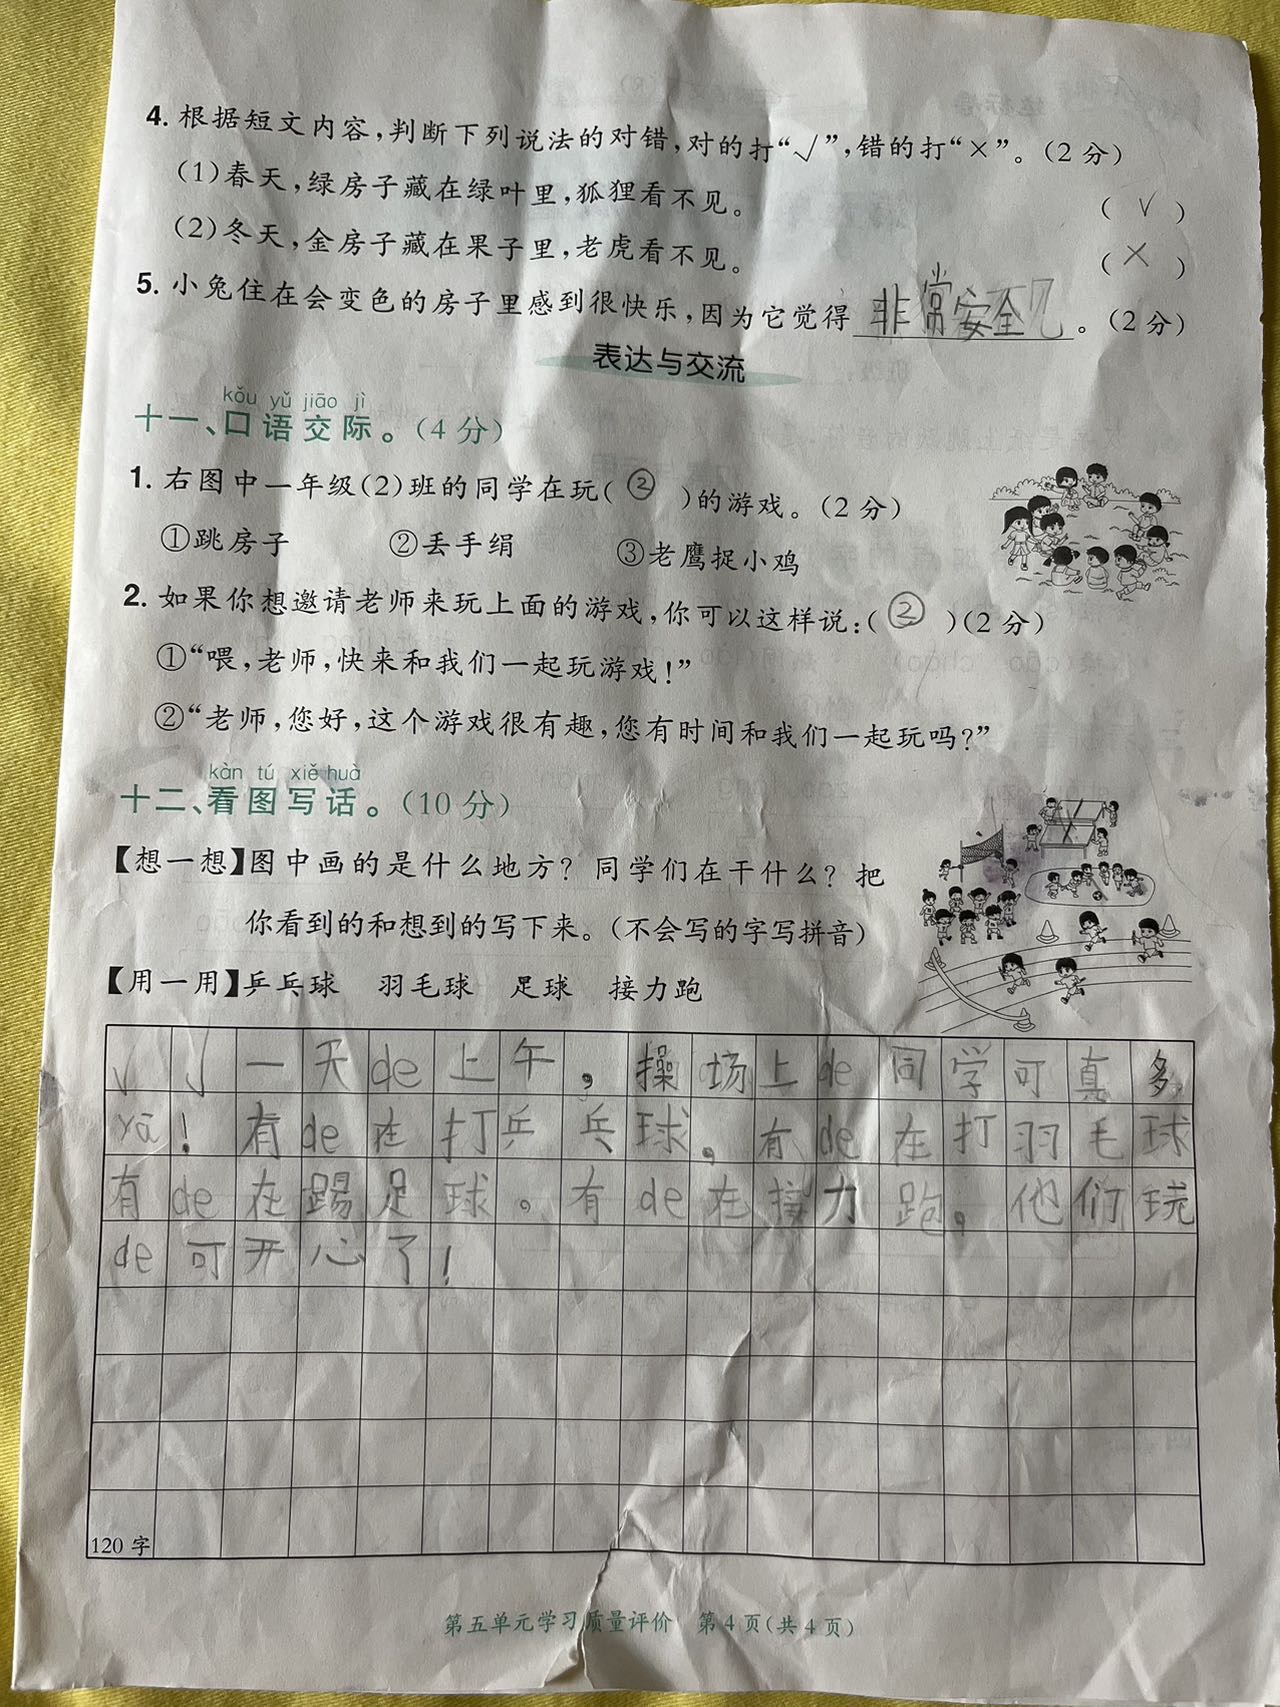 4. 根据短文内容,判断下列说法的对错,对的打“√”,错的打“×”。(2分)
(1)春天,绿房子藏在绿叶里,狐狸看不见。 ( √ )
(2)冬天,金房子藏在果子里,老虎看不见。 ( × )
5. 小兔住在会变色的房子里感到很快乐,因为它觉得 非常安全 。(2分)
表达与交流
kǒu yǔ jiāo jì
十一、口语交际。(4分)
1. 右图中一年级(2)班的同学在玩( ② )的游戏。(2分)
①跳房子 ②丢手绢 ③老鹰捉小鸡
2. 如果你想邀请老师来玩上面的游戏,你可以这样说:( ② )(2分)
①“喂,老师,快来和我们一起玩游戏!”
②“老师,您好,这个游戏很有趣,您有时间和我们一起玩吗?”
kàn tú xiě huà
十二、看图写话。(10分)
【想一想】图中画的是什么地方? 同学们在干什么? 把
你看到的和想到的写下来。(不会写的字写拼音)
【用一用】乒乓球 羽毛球 足球 接力跑
√ √ 一天de上午,操场上de同学可真多
yā!有de在打乒乓球。有de在打羽毛球
有de在踢足球。有de在接力跑。他们玩
de可开心了!
120字
第五单元学习质量评价 第4页(共4页)